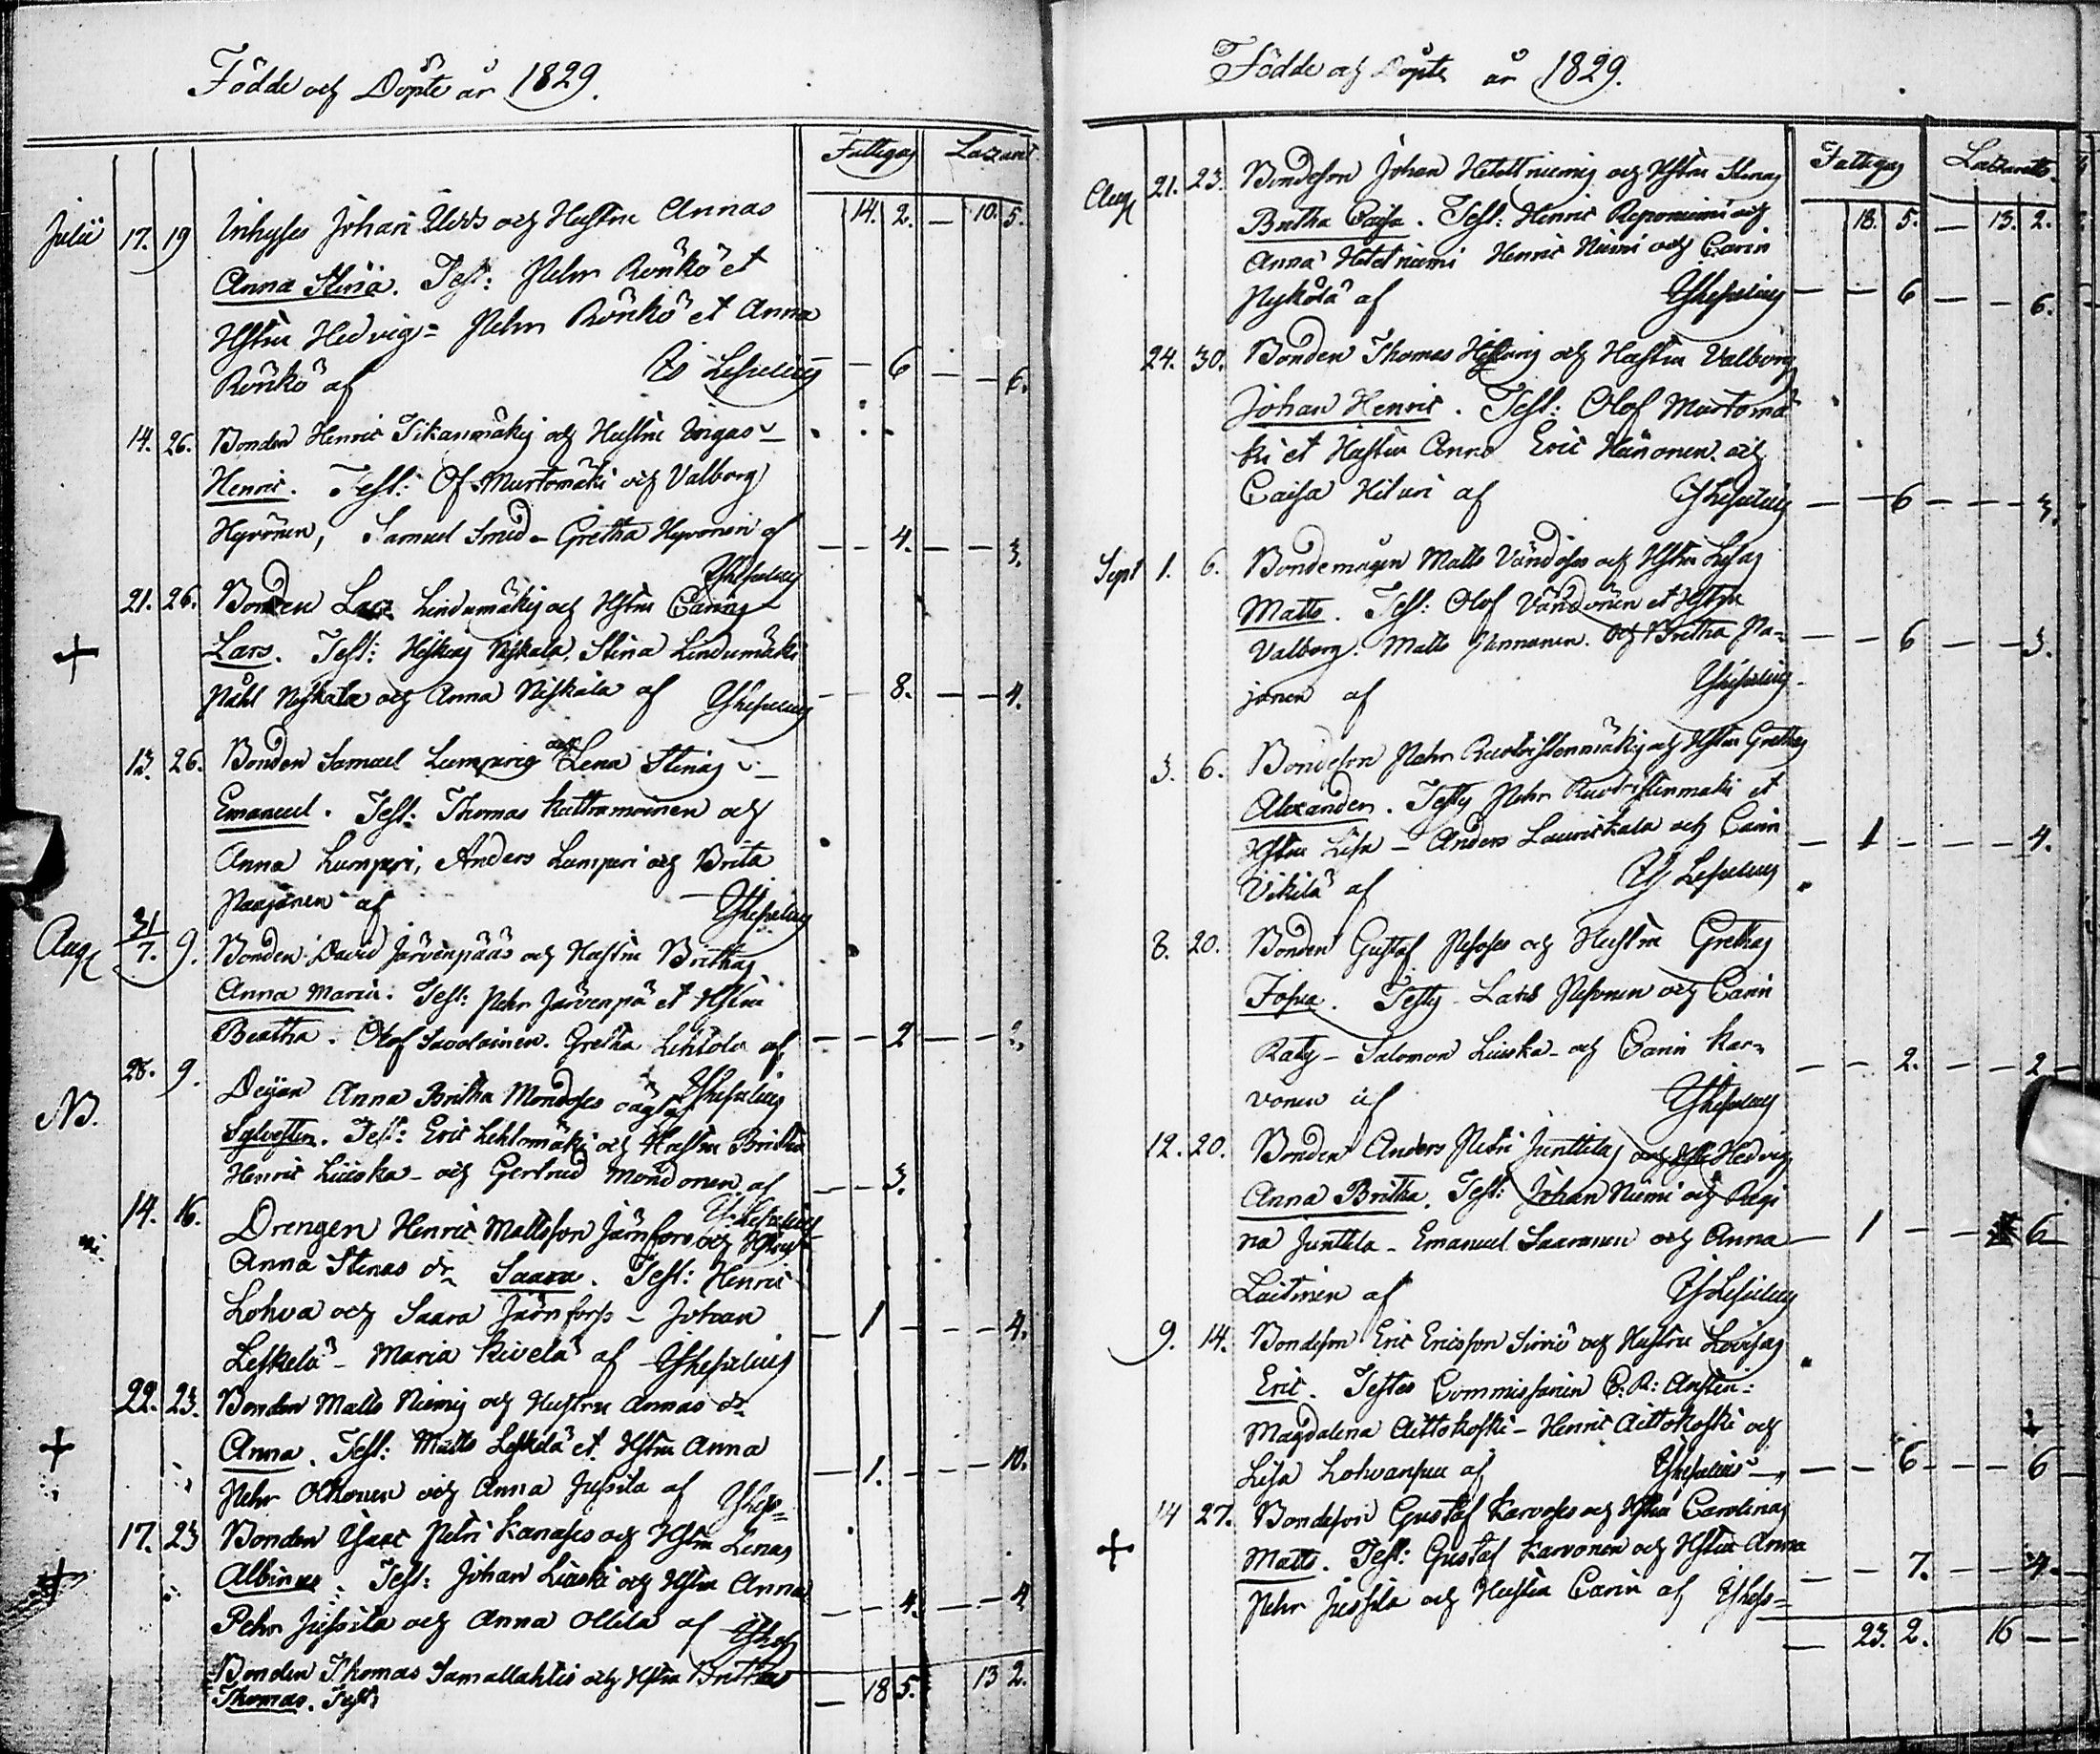 Födde och Döpte år 1829.
Fattigas Lazaret
Julii 17. 19 Inhyses Johan och Hustru Annas 14. 2. — 10. 5.
Anna Stina. Test: Pehr Rönkö et
Hstru Hedvig = Pehr Rönkö et Anna
Rönkö af — 6 — — 6.
14. 26. Bonden Henric Tikanmäkis och Hustru
Henric. Test: Of Murtomäki och Valborg
Hyvönen, Samuel Smed - Gretha Hyvönen af — — 4. — — 3.
21. 26. Bonden Lars Lindumäkis och Hstru Carins
Lars. Test: Niskala, Stina Lindumäki
Påhl Niskala och Anna Niskala af — — 8. — — 4.
13. 26. Bonden Samuel Lumperis och Lena Stinas
Emanuel. Test: Thomas och
Anna Lumperi, Anders Lumperi och Brita
Paajanen af
Aug 31/7. 9. Bonden David Järvenpääs och Hustru Brithas
Anna Maria. Test: Pehr Järvenpä et Hstru
Beatha. Olof Savolainen. Gretha Lehtola af — — 2 — — 2.
28. 9. Anna Britha oägta
NB. Sylvester. Test: Eric Lehtomäki och Hustru Britha
Henric Liuska - och Gertrud Möndönen af — — 3.
14. 16. Drengen Henric Mattsson Järnfors och Hstru
Anna Stinas dr Saara. Test: Henric
Lohva och Saara Järnforss - Johan — 1 — — 4.
Leskelä - Maria Kivelä af
22. 23. Bonden Matts Niemis och Hustru Annas dr
+ Anna. Test: Matts Leskelä et Hstru Anna
Pehr Olkonen och Anna Jussila af — 1. — — 10.
17. 23 Bonden Isaac Petri Kanases och Hstru Lenas
+ Albinus. Test: Johan Liuski och Hstru Anna
Pehr Jussila och Anna Ollila af — — 4. — — 4
Bonden Thomas Samallahtis och Hstru Brithas
Thomas. Test: — 18 5. 13 2.
Födde och Döpte år 1829.
Fattigas Lazaretts
Aug 21. 23. Bondeson Johan Hetetniemis och Hstru Stinas
Britha Caisa. Test: Henric Reponiemi och 18. 5. — 13. 2.
Anna Hetetniemi Henric Niemi och Carin
Nykölä af — — 6 — — 6.
24. 30. Bonden Thomas och Hustru Valborgs
Johan Henric. Test: Olof Murtomä
ki et Hustru Anna Eric Hänönen och
Caisa Hiluri af — — 6 — — 3.
Sept 1. 6. Bondemågen Matts Vändöses och Hstru Lisas
Matts. Test: Olof Vändönen et Hstru
Valborg. Matts Pennanen. och Britha Pa- — — 6 — — 3.
janen af
3. 6. Bondeson Pehr Ruotsistenmäkis och Hstru Grethas
Alexander. Test: Pehr Ruotsistenmäki et
Hstru Lisa - Anders Lauriskala och Carin — 1 — — 4.
Vikilä af
8. 20. Bonden Gustaf Pesoses och Hustru Grethas
Josua. Test: Lars Pesonen och Carin
Räty - Salomon Liuska - och Carin Kar- — — 2. — — 2 —
vonen af
12. 20. Bonden Anders Petri Junttilas och Hedvigs
Anna Britha. Test: Johan Niemi och Regi
na Junttila - Emanuel Saaranen och Anna — 1 — — 6
Laitinen af
9. 14. Bondeson Eric Ericsson Sirviö och Hustru Lovisas
Eric. Testes Commissarien C: R:
Magdalena Aittokoski - Henric Aittokoski och
Lisa af — — 6 — — 6
14 27. Bondeson Gustaf Karvoses och Hstru Carolinas
+ Matts. Test: Gustaf Karvonen och Hstru Anna
Pehr Jussila och Hustru Carin af — — 7. — — 4.
— 23. 2. 16 — —